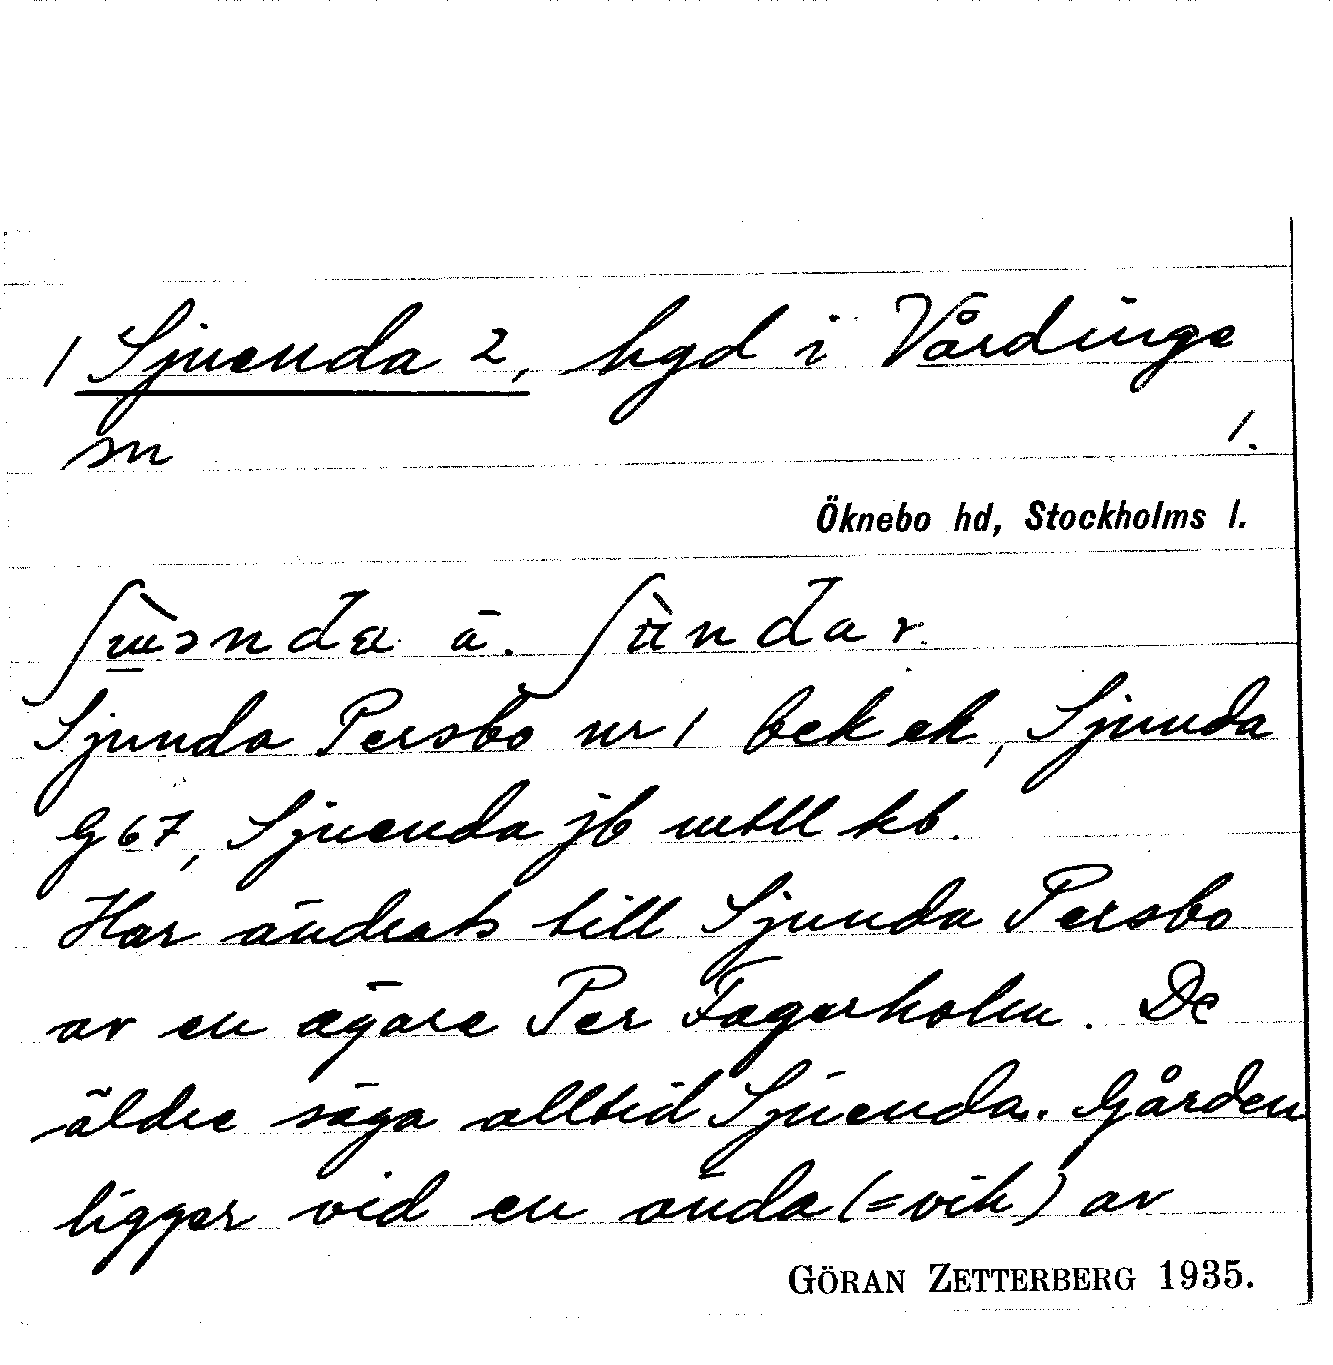 1 Sjuenda 2, hgd i Vårdinge
sn
1.
Öknebo hd, Stockholms l.
ä.
Sjunda Persbo nr 1 bek ek, Sjunda
G 67, Sjuenda jb uttll kb.
Har ändrats till Sjunda Persbo
av en ägare Per Fagerholm. De
äldre säga alltid Sjuenda. Gården
ligger vid en ända (=vik) av
GÖRAN ZETTERBERG 1935.